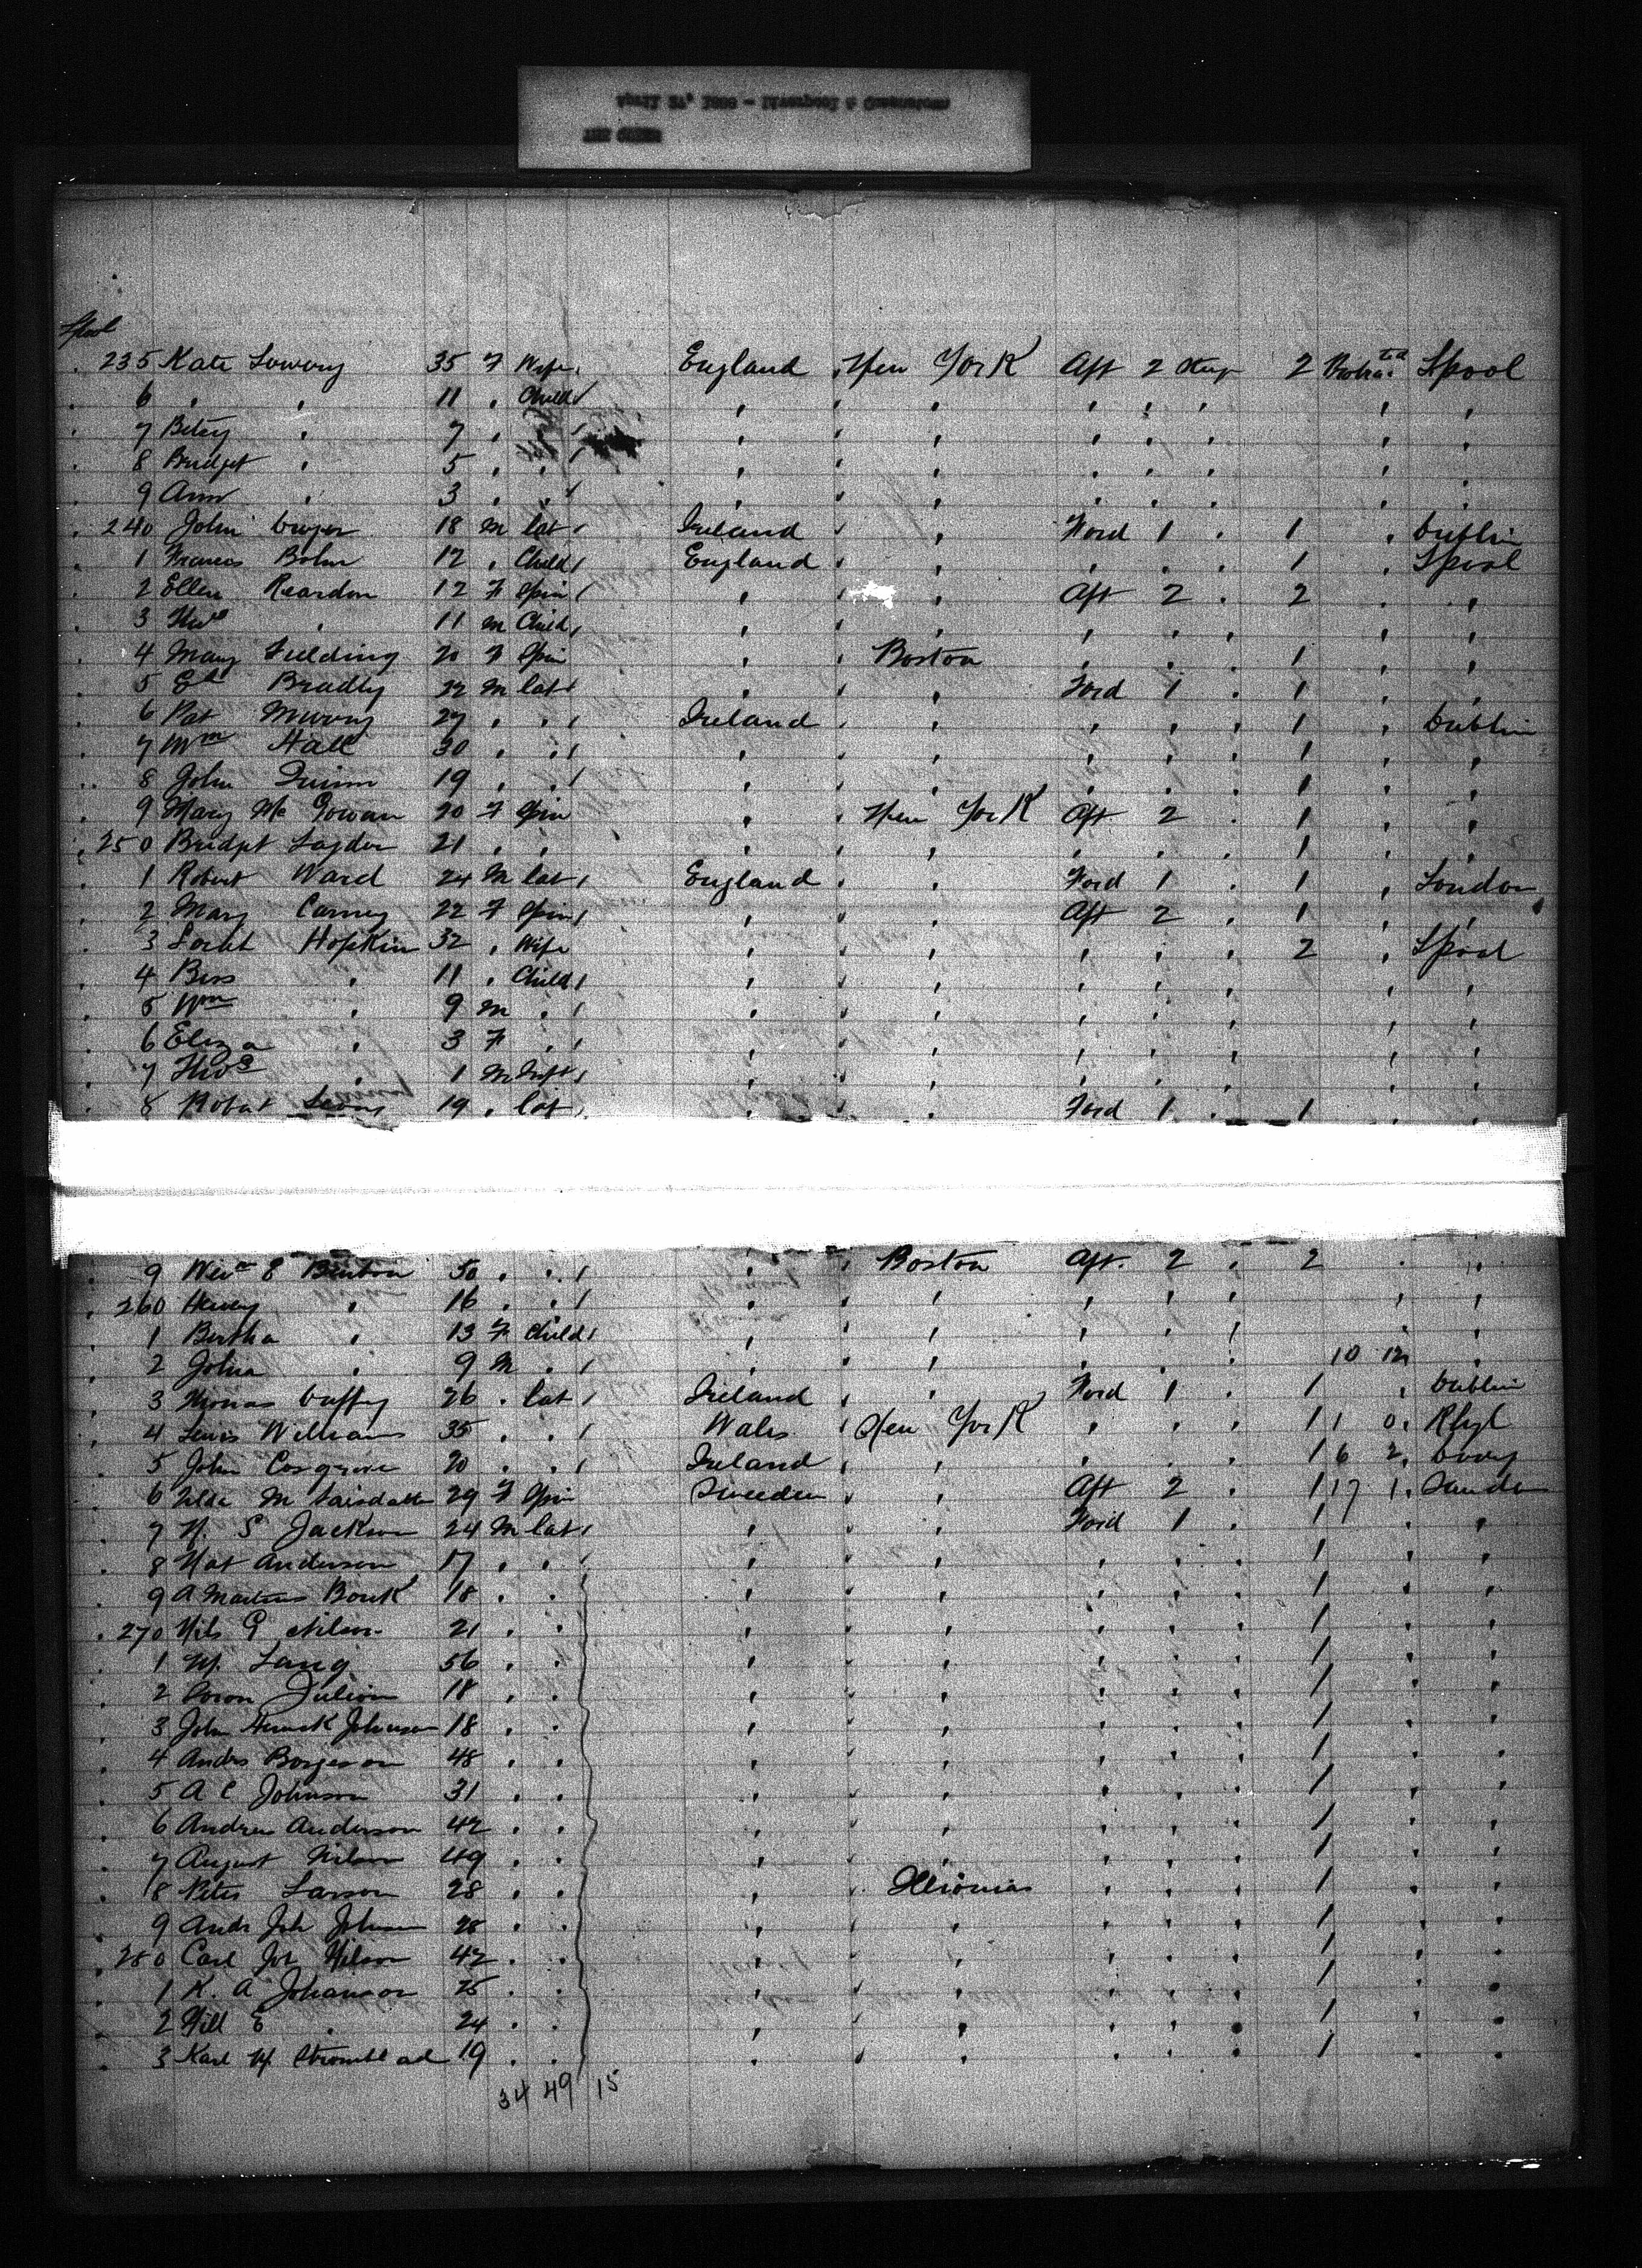 235 Kate Lowery 35 F Wife England New York Aft 2 2 Lpool
6 " " 11 " Child " " " " " " "
7 Betsy " 7 " " " " " " " "
8 Bridget " 5 " " " " " " " "
9 Ann " 3 " " " " " " " "
240 John Dwyer 18 M lab Ireland " Ford 1 " 1 " Dublin
1 Frances Bohn 12 " Child England " " " " 1 " Lpool
2 Ellen Reardon 12 F Spin " " Aft 2 " 2 " "
3 Thos " 11 M Child " " " " " " "
4 Mary Fielding 20 F Spin " Boston " " " 1 " "
5 Ed Bradly 22 M lab " " Ford 1 " 1 " "
6 Pat Murray 27 " " Ireland " " " " 1 " Dublin
7 Wm Hall 30 " " " " " " " 1 " "
8 John Quinn 19 " " " " " " " 1 " "
9 Mary Mc Gowan 20 F Spin " New York Aft 2 " 1 " "
250 Bridget 21 " " " " " " " 1 " "
1 Robert Ward 24 M lab England " Ford 1 " 1 " London
2 Mary Carney 22 F Spin " " Aft 2 " 1 " "
3 Sarah Hopkin 32 " Wife " " " " " 2 " Lpool
4 Bess " 11 " Child " " " " " " "
5 Wm " 9 M " " " " " " " "
6 Eliza " 3 F " " " " " " " "
7 Thos " 1 M Inft " " " " " " "
8 Robert 19 " lab " " Ford 1 " 1 " "
9 50 " " " Boston Aft. 2 " 2 " "
260 Harry " 16 " " " " " " " " "
1 Bertha " 13 F Child " " " " " " "
2 John " 9 M " " " " " " 10 12 "
3 Thomas Duffy 26 " lab Ireland " Ford 1 " 1 " Dublin
4 Lewis Williams 35 " " Wales New York " " " 1 1 0 Rhyl
5 John Cosgrove 20 " " Ireland " " " " 1 6 2
6 29 F Spin Sweden " Aft 2 " 1 17 1
7 N. S Jackson 24 M lab " " Ford 1 " 1 " "
8 Nat Anderson 17 " " " " " " " 1 " "
9 A 18 " " " " " " " 1 " "
270 Nils G Nilson 21 " " " " " " " 1 " "
1 56 " " " " " " " 1 " "
2 18 " " " " " " " 1 " "
3 John Johnson 18 " " " " " " " 1 " "
4 Andrs Borgeson 48 " " " " " " " 1 " "
5 A C Johnson 31 " " " " " " " 1 " "
6 Andrew Anderson 42 " " " " " " " 1 " "
7 August Nilson 49 " " " " " " " 1 " "
8 Peter Larson 28 " " " " " " 1 " "
9 Andr Joh Johnson 28 " " " " " " " 1 " "
280 Carl Joh Nilson 42 " " " " " " " 1 " "
1 K. A Johanson 25 " " " " " " " 1 " "
2 E " 24 " " " " " " " 1 " "
3 Karl Stromblad 19 " " " " " " " 1 " "
34 49 15